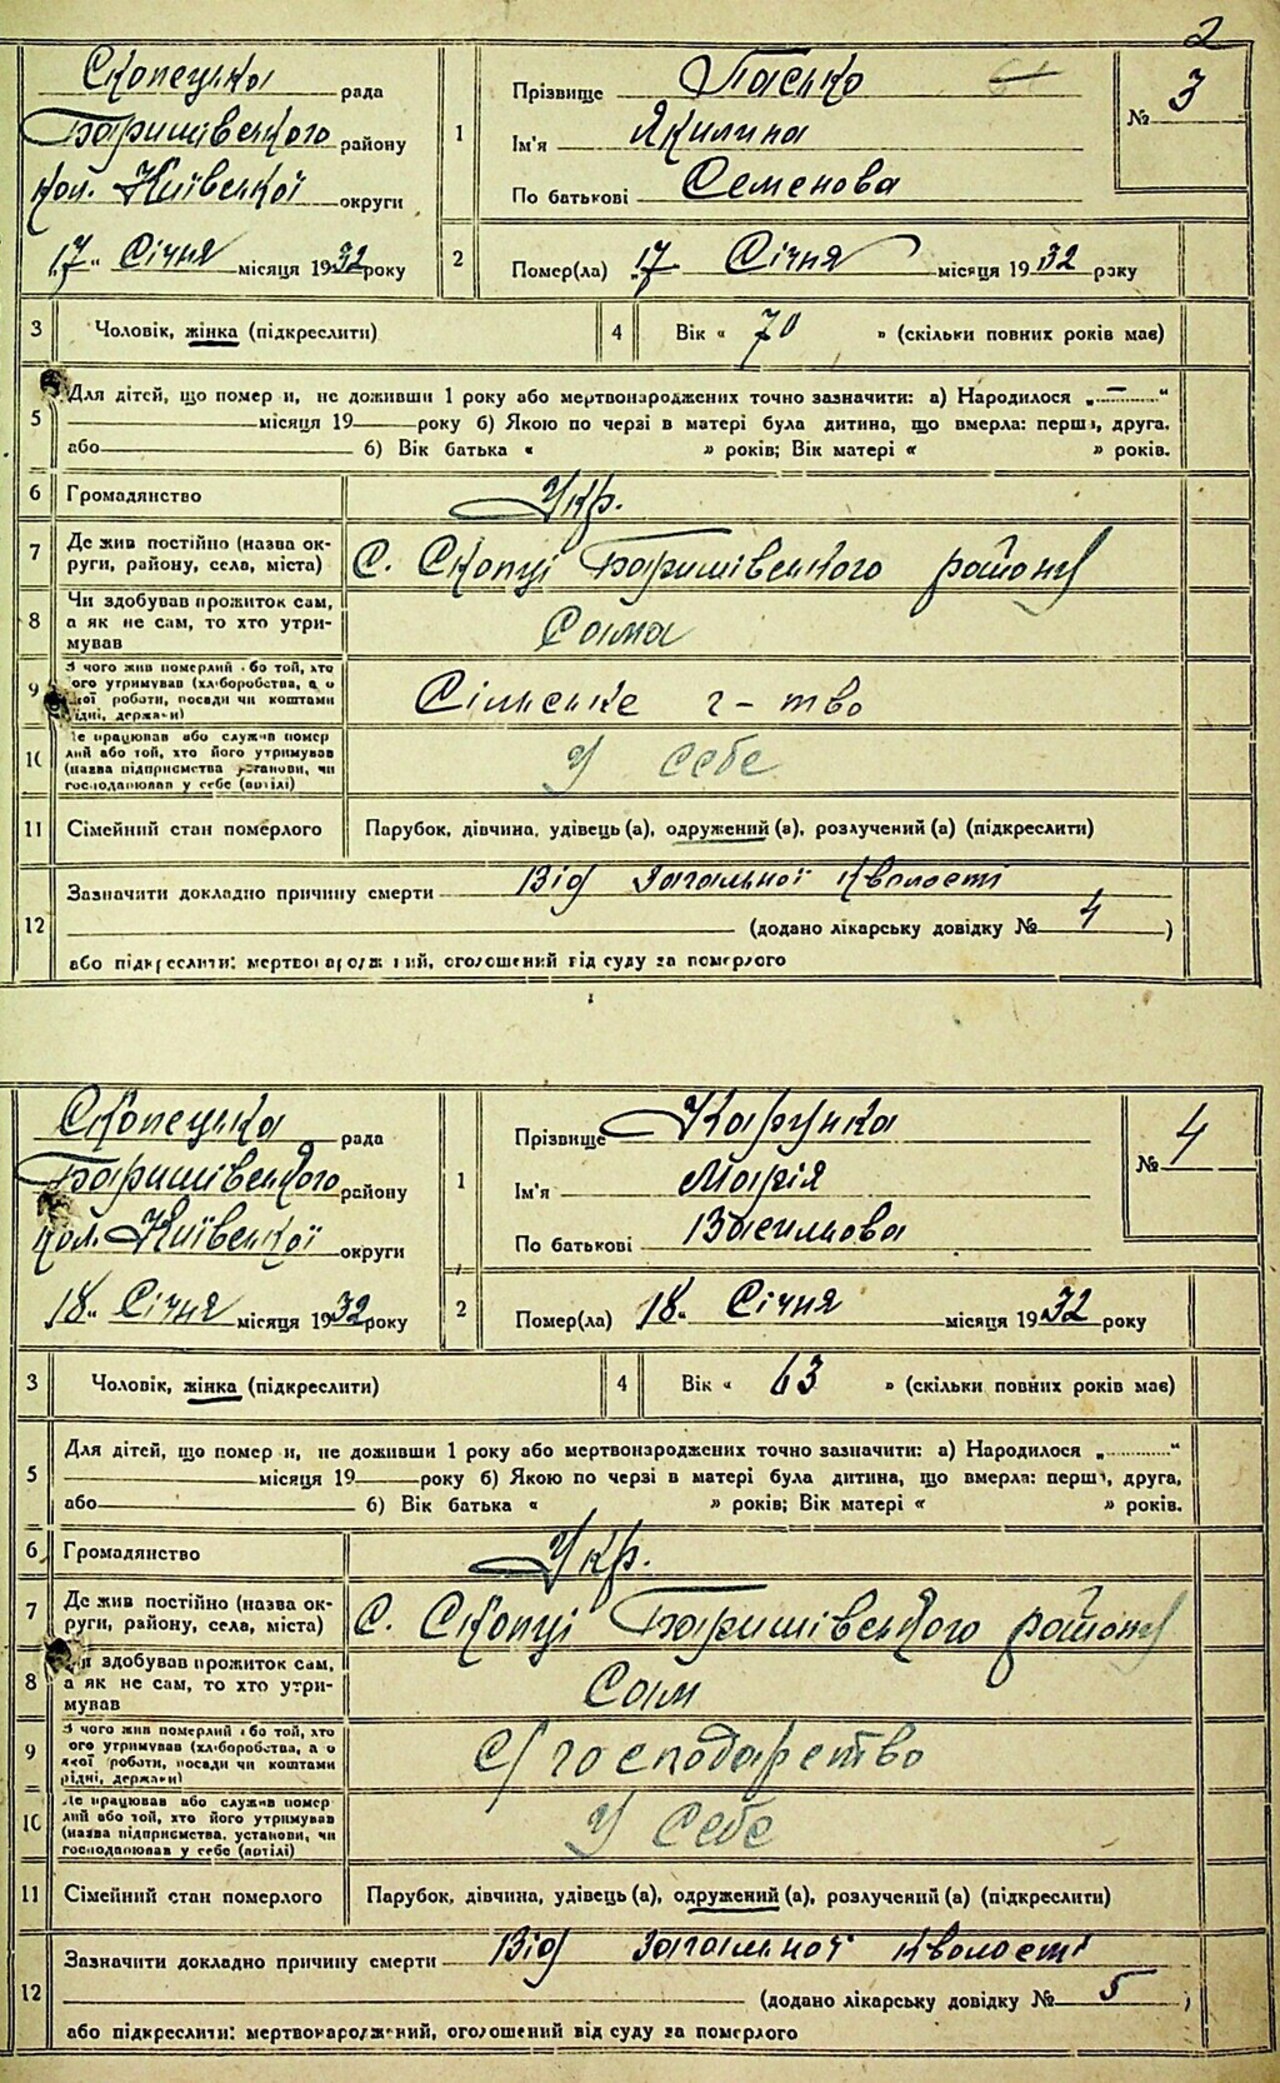 2
Скопецька рада
Баришівського району
кол. Київської округи
„17“ Січня місяця 1932 року
1
Прізвище Пасько
Ім'я Якилина
По батькові Семенова
№ 3
2
Помер(ла) „17“ Січня місяця 1932 року
3 Чоловік, жінка (підкреслити)
4 Вік « 70 » (скільки повних років має)
5 Для дітей, що померли, не доживши 1 року або мертвонароджених точно зазначити: а) Народилося „ “
місяця 19 року б) Якою по черзі в матері була дитина, що вмерла: перша, друга,
або б) Вік батька « » років; Вік матері « » років.
6 Громадянство Укр.
7 Де жив постійно (назва ок-
руги, району, села, міста) С. Скопці Баришівського району
8 Чи здобував прожиток сам,
а як не сам, то хто утри-
мував Сама
9 З чого жив померлий або той, хто
його утримував (хліборобства, а о
якої роботи, посади чи коштами
рідні, держави) Сільське г-тво
10 Де працював або служив помер
лий або той, хто його утримував
(назва підприємства установи, чи
господарював у себе (артілі) У себе
11 Сімейний стан померлого Парубок, дівчина, удівець (а), одружений (а), розлучений (а) (підкреслити)
12 Зазначити докладно причину смерти Від загальної кволості
(додано лікарську довідку № 4 )
або підкреслити: мертвонароджений, оголошений від суду за померлого
Скопецька рада
Баришівського району
кол. Київської округи
18 „ Січня місяця 1932 року
1
Прізвище Карунка
Ім'я Марія
По батькові Васильова
№ 4
2
Помер(ла) 18 „ Січня місяця 1932 року
3 Чоловік, жінка (підкреслити)
4 Вік « 63 » (скільки повних років має)
5 Для дітей, що померли, не доживши 1 року або мертвонароджених точно зазначити: а) Народилося „ “
місяця 19 року б) Якою по черзі в матері була дитина, що вмерла: перша, друга,
або б) Вік батька « » років; Вік матері « » років.
6 Громадянство Укр.
7 Де жив постійно (назва ок-
руги, району, села, міста) С. Скопці Баришівського району
8 Чи здобував прожиток сам,
а як не сам, то хто утри-
мував Сам
9 З чого жив померлий або той, хто
його утримував (хліборобства, а о
якої роботи, посади чи коштами
рідні, держави) С/господарство
10 Де працював або служив помер
лий або той, хто його утримував
(назва підприємства, установи, чи
господарював у себе (артілі) У себе
11 Сімейний стан померлого Парубок, дівчина, удівець (а), одружений (а), розлучений (а) (підкреслити)
12 Зазначити докладно причину смерти Від загальної кволості
(додано лікарську довідку № 5 )
або підкреслити: мертвонароджений, оголошений від суду за померлого